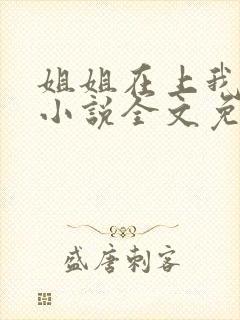 姐姐在上我
小说全文免
盛唐刺客